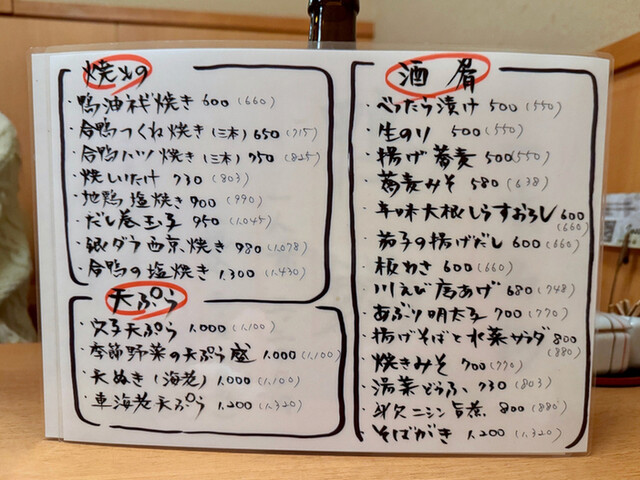 焼もの
・鴨油ネギ焼き 600 (660)
・合鴨つくね焼き (三本) 650 (715)
・合鴨ハツ焼き (三本) 750 (825)
・焼しいたけ 730 (803)
・地鶏塩焼き 900 (990)
・だし巻玉子 950 (1.045)
・銀ダラ西京焼き 980 (1.078)
・合鴨の塩焼き 1.300 (1.430)
天ぷら
・穴子天ぷら 1.000 (1.100)
・季節野菜の天ぷら盛 1.000 (1.100)
・天ぬき (海老) 1.000 (1.100)
・車海老天ぷら 1.200 (1.320)
酒肴
・べったら漬け 500 (550)
・生のり 500 (550)
・揚げ蕎麦 500 (550)
・蕎麦みそ 580 (638)
・辛味大根しらすおろし 600 (660)
・茄子の揚げだし 600 (660)
・板わさ 600 (660)
・川えび唐あげ 680 (748)
・あぶり明太子 700 (770)
・揚げそばと水菜サラダ 800 (880)
・焼きみそ 700 (770)
・湯葉どうふ 730 (803)
・身欠ニシン 800 (880)
・そばがき 1.200 (1.320)